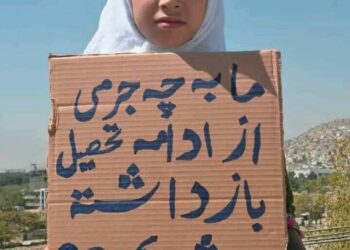 ما به چه جرمی
از ادامه تحصیل
بازداشته